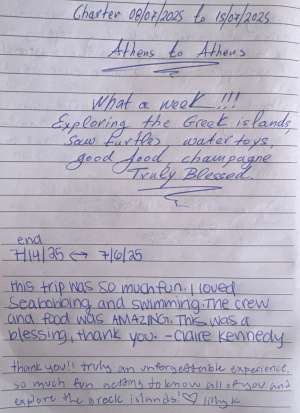 Charter 08/07/2025 to 15/07/2025
Athens to Athens
What a week!!!
Exploring the Greek islands,
saw turtles, water toys,
good food, champagne
Truly Blessed.
end
7/14/25 ↔ 7/6/25
This trip was so much fun. I loved
seabobbing and swimming. The crew
and food was AMAZING. This was a
blessing, thank you. -Claire Kennedy
thank you!! truly an unforgettable experience.
so much fun getting to know all of you and
explore the greek islands! ♡